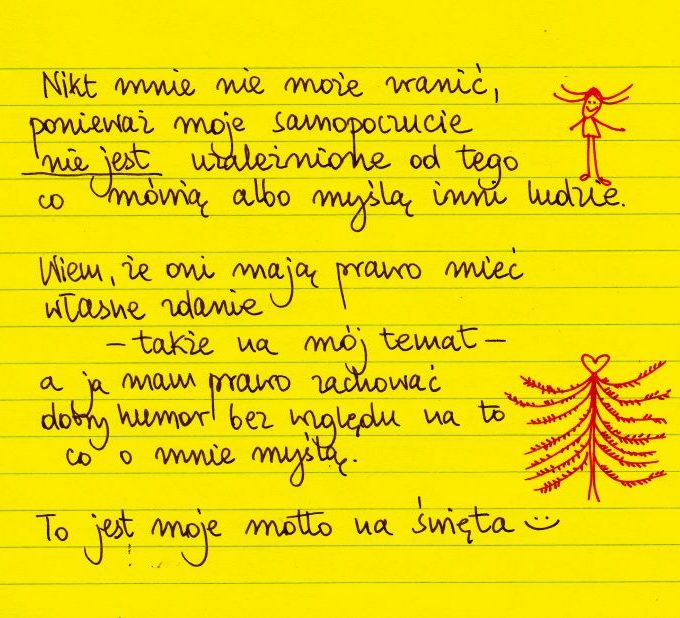 Nikt mnie nie może zranić,
ponieważ moje samopoczucie
nie jest uzależnione od tego
co mówią albo myślą inni ludzie.
Wiem, że oni mają prawo mieć
własne zdanie
– także na mój temat –
a ja mam prawo zachować
dobry humor bez względu na to
co o mnie myślą.
To jest moje motto na święta :)